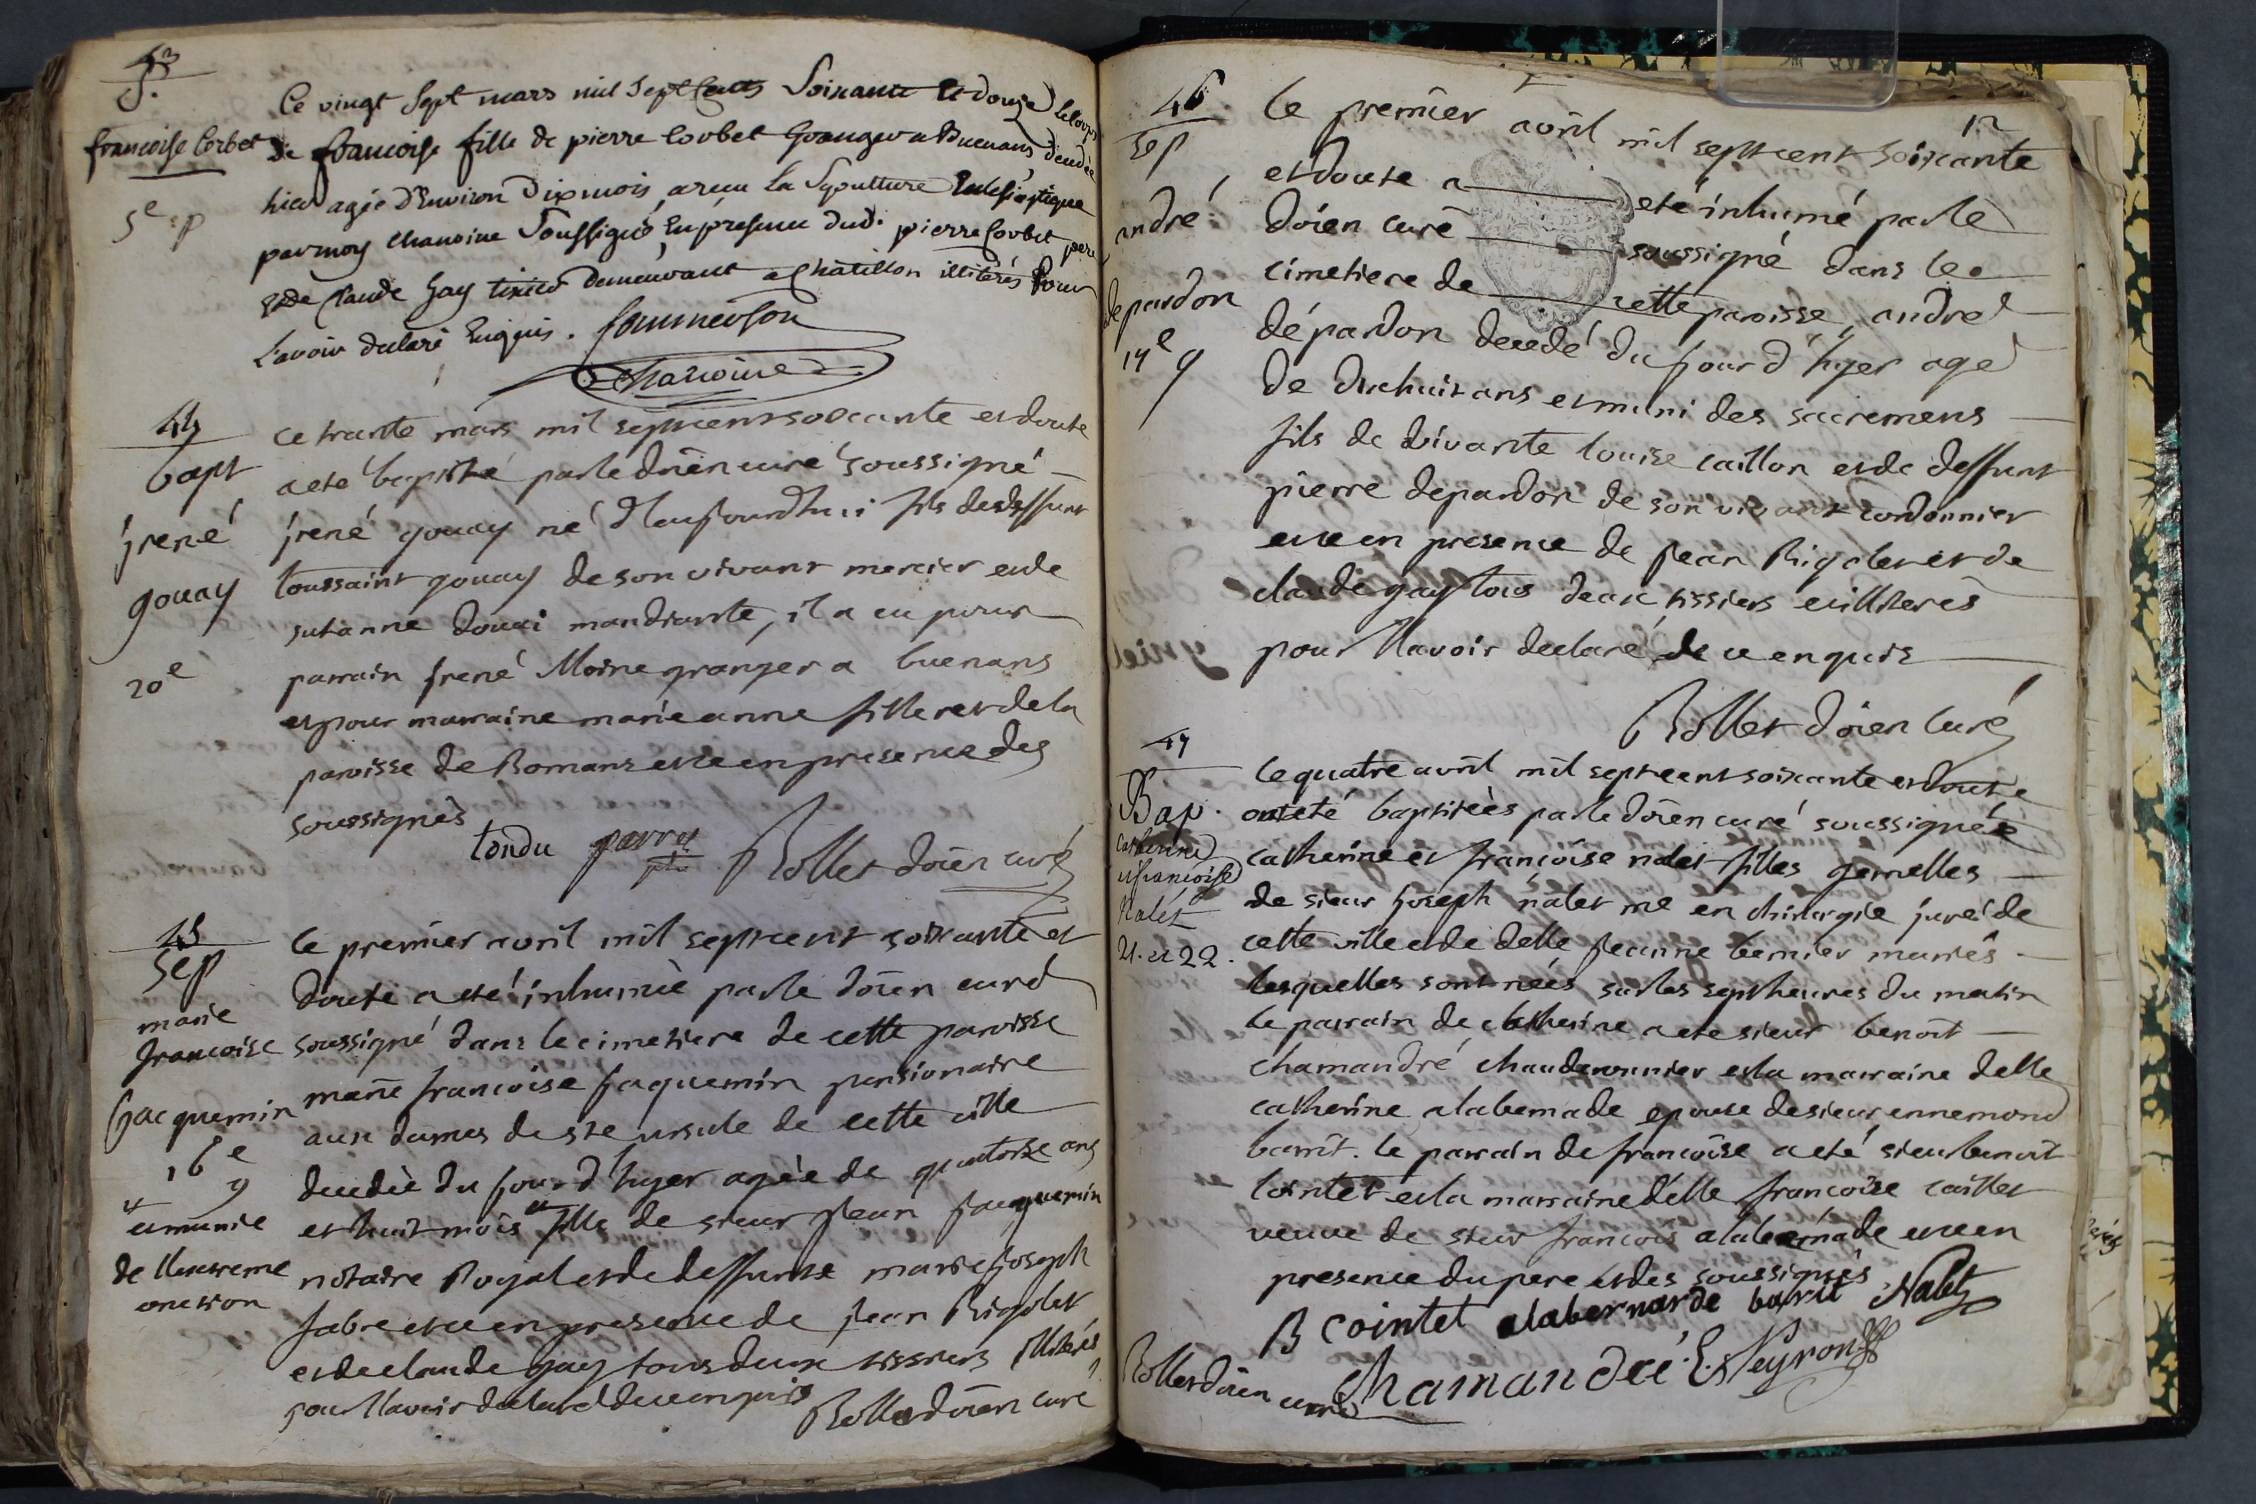 43
S.
francoise Corbet
5e sep
Ce vingt Sept mars mil Sept Cents Soixante Et douze le corps
de francoise fille de pierre Corbet Granger a Buenans decedée
hier agée d'Environ Dix mois, a recu La Sepulture Eclésiastique
par moy Chanoine Soussigné, En presence dud. pierre Corbet pere
Et de Claude Gay tixier demeurant a Châtillon illiterés Pour
L'avoir declaré Enquis. Sommerson
Chanoine
44
bapt
jrené
gouay
20e
ce trante mars mil septcent soixante et douze
a eté baptisé par le doïen curé soussigné
jrené gouay né d'aujourdhui fils de deffunt
toussaint gouay de son vivant mercier et de
sutanne douai mandiante, il a eu pour
parrain jrené Moine granger a buenans
et pour marraine marie anne filleret de la
paroisse de Romans et ce en presence des
soussignés
tondu parry ptre Rollet doïen curé
45
sep
marie
francoise
Jacquemin
16e
g
et munie
de l'extreme
onction
le premier avril mil septcent soixante et
douze a eté inhumée par le doïen curé
soussigné dans le cimetiere de cette paroisse
marie francoise jaquemin pensionaire
aux dames de ste ursule de cette ville
decedée du jour d'hyer agée de quatorze ans
et huit mois fille de sieur jean jacquemin
notaire Royal et de deffunte marie joseph
fabre et ce en presence de jean Rigolet
et de claude gay tous deux tissiers illiterés
pour l'avoir declaré de ce enquis Rollet doïen curé
46
sep
andré
depardon
17e g
12
le premier avril mil septcent soixante
et douze a eté inhumé par le
doïen curé soussigné dans le
cimetiere de cette paroisse, andré
dépardon decedé du jour d'hyer agé
de dixhuit ans et muni des sacremens
fils de vivante louise caillon et de deffunt
pierre depardon de son vivant cordonnier
et ce en presence de jean Rigolet et de
claude gay tous deux tissiers et illiterés
pour l'avoir declaré de ce enquis
Rollet doïen curé
47
Bap.
catherine
et francoise
Nalet
21. et 22.
le quatre avril mil septcent soixante et douze
ont eté baptisées par le doïen curé soussigné
catherine et françoise nalet filles gemelles
de sieur joseph nalet me en chirurgie juré de
cette ville et de delle jeanne bernier mariés
lesquelles sont nées sur les sept heures du matin
le parrain de catherine a ete sieur benoit
chamandré chauderonnier et la marraine delle
catherine alabernade epouse de sieur ennemond
barrit. le parrain de francoise a eté sieur benoit
cointet et la marraine delle francoise caillet
veuve de sieur francois alabernade et ce en
presence du pere et des soussignés
B Cointet alabernarde barit Nalet
Rollet doïen curé Chamandré E. Neyron